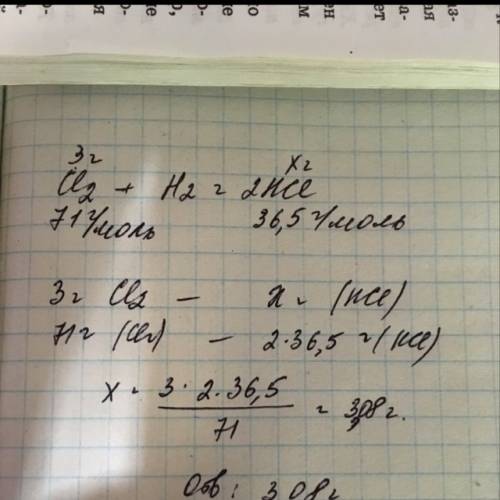 3г xг
Cl2 + H2 = 2HCl
71 г/моль 36,5 г/моль
3г Cl2 — x г (HCl)
71г (Cl2) — 2·36,5 г (HCl)
x = 3·2·36,5 / 71 = 3,08 г.
Отв: 3,08 г